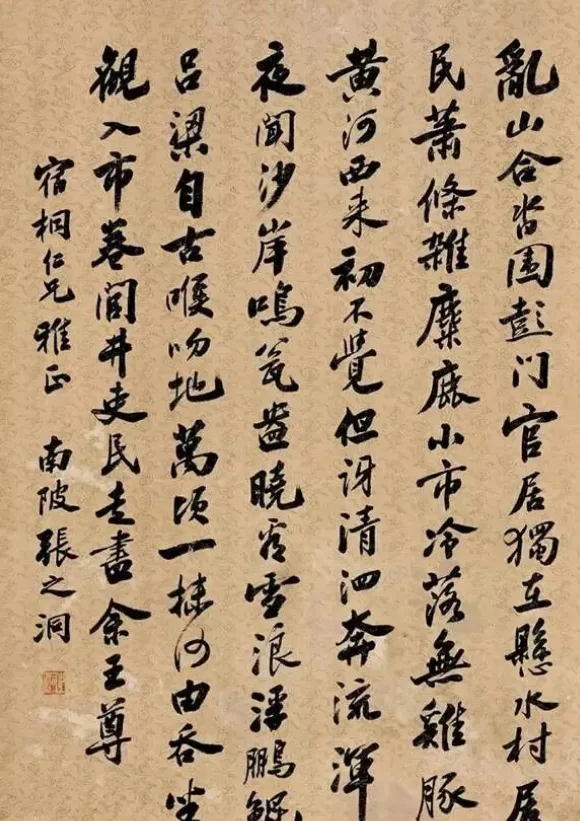 亂山合沓圍彭门官居獨在懸水村居
民蕭條雜麋鹿小市冷落無雞豚
黄河西来初不覺但訝清泗奔流渾
夜聞沙岸鳴瓮盎曉看雪浪浮鵬鯤
吕梁自古喉吻地萬頃一抹何由吞坐
觀入市卷閭井吏民走盡余王尊
宿桐仁兄雅正 南陂張之洞